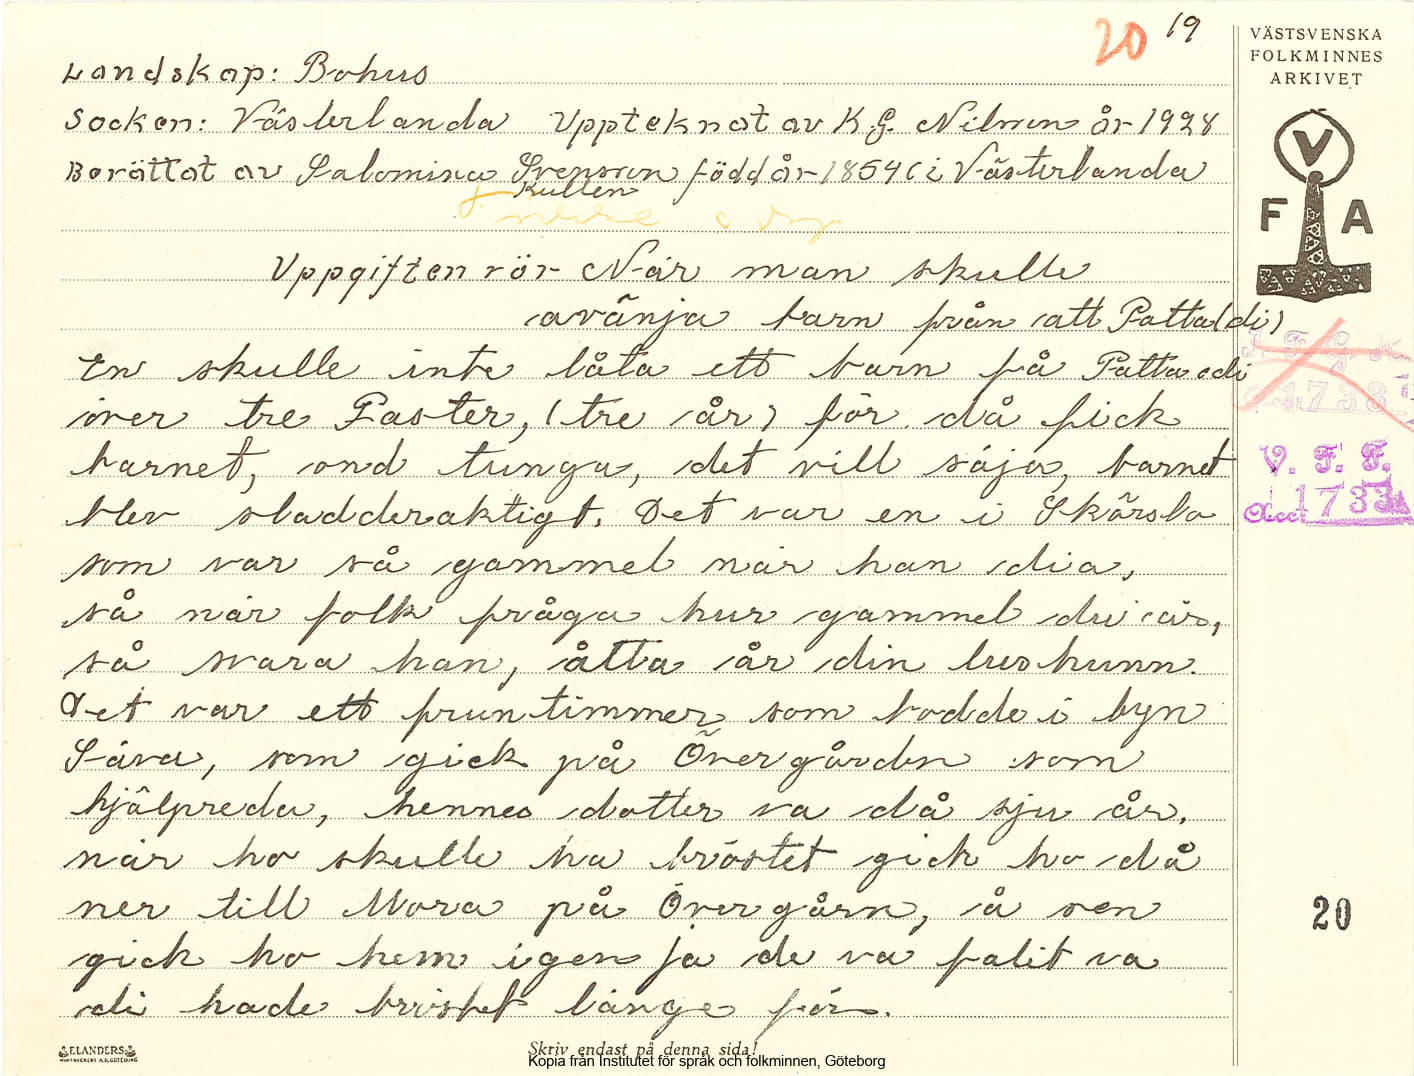 20 19
VÄSTSVENSKA
FOLKMINNES
ARKIVET
V
F A
Landskap: Bohus
Socken: Västerlanda Upptecknat av K.G. Nilsson år 1928
Berättat av Salomina Svensson född år 1854 i Västerlanda
Kullen
Uppgiften rör När man skulle
avänja barn från att Patta (di)
En skulle inte låta ett barn få Patta di
över tre Faster, (tre år) för då fick
barnet, ond tunga, det vill säja, barnet
blev sladderaktigt. Det var en i Skärsbo
som var så gammel när han dia,
så när folk fråga hur gammel du är,
så svara han, åtta år din lushunn.
Det var ett fruntimmer som bodde i byn
Säva, som gick på Övergården som
hjälpreda, hennes dotter va då sju år.
när ho skulle ha bröstet gick ho då
ner till Mora på Övergårn, å sen
gick ho hem igen ja de va falit va
di hade bröstet länge för.
I. F. G. H.
1733
V. F. F.
Acc. 1733
20
ELANDERS
Skriv endast på denna sida!
Kopia från Institutet för språk och folkminnen, Göteborg